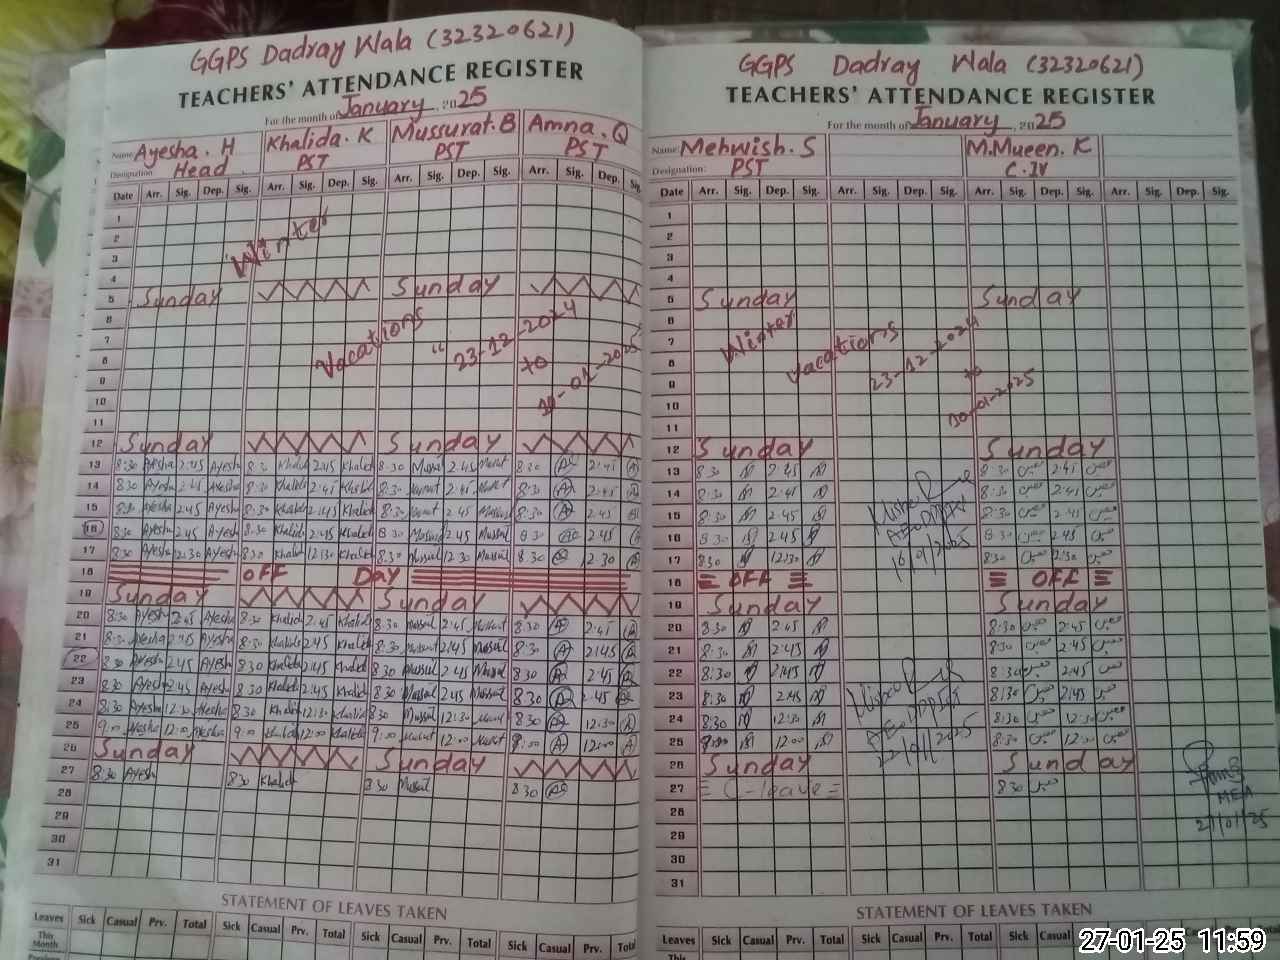 GGPS Dadray Wala (32320621)
TEACHERS' ATTENDANCE REGISTER
For the month of January, 2025
Name: Ayesha. H Khalida. K Mussurat. B Amna. Q
Designation Head PST PST PST
Date Arr. Sig. Dep. Sig. Arr. Sig. Dep. Sig. Arr. Sig. Dep. Sig. Arr. Sig. Dep. Sig.
1
2
3
Winter
4
5 Sunday Sunday
6
7
Vacations " 23-12-2024
8
to
9
10
-01-2025
11
12 Sunday Sunday
13 8:30 Ayesha 2:45 Ayesha 8:30 Khalid 2:45 Khalid 8:30 2:45 8:30 A 2:45 A
14 8:30 Ayesha 2:45 Ayesha 8:30 Khalid 2:45 Khalid 8:30 2:45 8:30 A 2:45 A
15 8:30 Ayesha 2:45 Ayesha 8:30 Khalid 2:45 Khalid 8:30 2:45 8:30 A 2:45
16 8:30 Ayesha 2:45 Ayesha 8:30 Khalid 2:45 Khalid 8:30 2:45 8:30 2:45 A
17 8:30 Ayesha 12:30 Ayesha 8:30 Khalid 12:30 Khalid 8:30 12:30 8:30 12:30 A
18 OFF Day
19 Sunday Sunday
20 8:30 Ayesha 2:45 Ayesha 8:30 Khalid 2:45 Khalid 8:30 2:45 8:30 A 2:45 A
21 8:30 Ayesha 2:45 Ayesha 8:30 Khalid 2:45 Khalid 8:30 2:45 8:30 A 2:45
22 8:30 Ayesha 2:45 Ayesha 8:30 Khalid 2:45 Khalid 8:30 2:45 8:30 A 2:45
23 8:30 Ayesha 2:45 Ayesha 8:30 Khalid 2:45 Khalid 8:30 2:45 8:30 A 2:45
24 8:30 Ayesha 12:30 Ayesha 8:30 Khalid 12:30 Khalid 8:30 12:30 8:30 A 12:30 A
25 9:00 Ayesha 12:00 Ayesha 9:00 Khalid 12:00 Khalid 9:00 12:00 A 12:00 A
26 Sunday Sunday
27 8:30 Ayesh 8:30 Khalid 8:30 8:30
28
29
30
31
STATEMENT OF LEAVES TAKEN
Leaves Sick Casual Prv. Total Sick Casual Prv. Total Sick Casual Prv. Total Sick Casual Prv. Total
This Month
GGPS Dadray Wala (32320621)
TEACHERS' ATTENDANCE REGISTER
For the month of January, 2025
Name: Mehwish. S M.Mueen. K
Designation: PST C.IV
Date Arr. Sig. Dep. Sig. Arr. Sig. Dep. Sig. Arr. Sig. Dep. Sig.
1
2
3
4
5 Sunday Sunday
6
7 Winter
Vacations 23-12-2024
8
to
9
-01-2025
10
11
12 Sunday Sunday
13 8:30 2:45 8:30 معین 2:45 معین
14 8:30 2:45 8:30 معین 2:45 معین
15 8:30 2:45 8:30 معین 2:45 معین
16 8:30 2:45 8:30 معین 2:45 معین
17 8:30 12:30 16/01/2025 8:30 معین 2:30 معین
18 OFF OFF
19 Sunday Sunday
20 8:30 2:45 8:30 معین 2:45 معین
21 8:30 2:45 8:30 معین 2:45 معین
22 8:30 2:45 8:30 معین 2:45 معین
23 8:30 2:45 8:30 معین 2:45 معین
24 8:30 12:30 8:30 معین 12:30 معین
25 12:00 8:30 معین 12:00 معین
26 Sunday Sunday
27 C-leave 8:30 معین
MEA
28
29
30
31
STATEMENT OF LEAVES TAKEN
Leaves Sick Casual Prv. Total Sick Casual Prv. Total Sick Casual
This
27-01-25 11:59